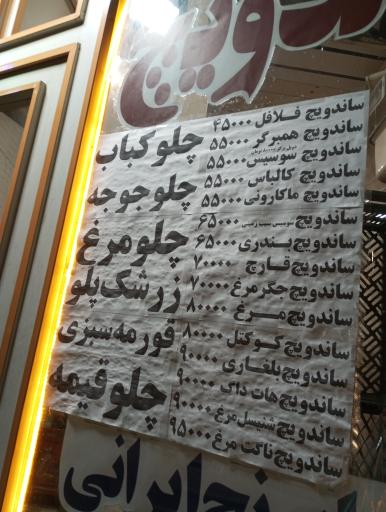 ساندویچ
ساندویچ فلافل ۴۵۰۰۰
ساندویچ همبرگر ۵۵۰۰۰
ساندویچ سوسیس ۵۵۰۰۰
ساندویچ کالباس ۵۵۰۰۰
ساندویچ ماکارونی ۵۵۰۰۰
ساندویچ سوسیس سیب زمینی ۶۵۰۰۰
ساندویچ بندری ۶۵۰۰۰
ساندویچ قارچ ۷۰۰۰۰
ساندویچ جگر مرغ ۷۰۰۰۰
ساندویچ مرغ ۸۰۰۰۰
ساندویچ کوکتل ۸۰۰۰۰
ساندویچ بلغاری ۹۰۰۰۰
ساندویچ هات داگ ۹۰۰۰۰
ساندویچ شنیسل مرغ ۹۰۰۰۰
ساندویچ ناگت مرغ ۹۵۰۰۰
چلو کباب
چلو جوجه
چلو مرغ
زرشک پلو
قورمه سبزی
چلو قیمه
برنج ایرانی